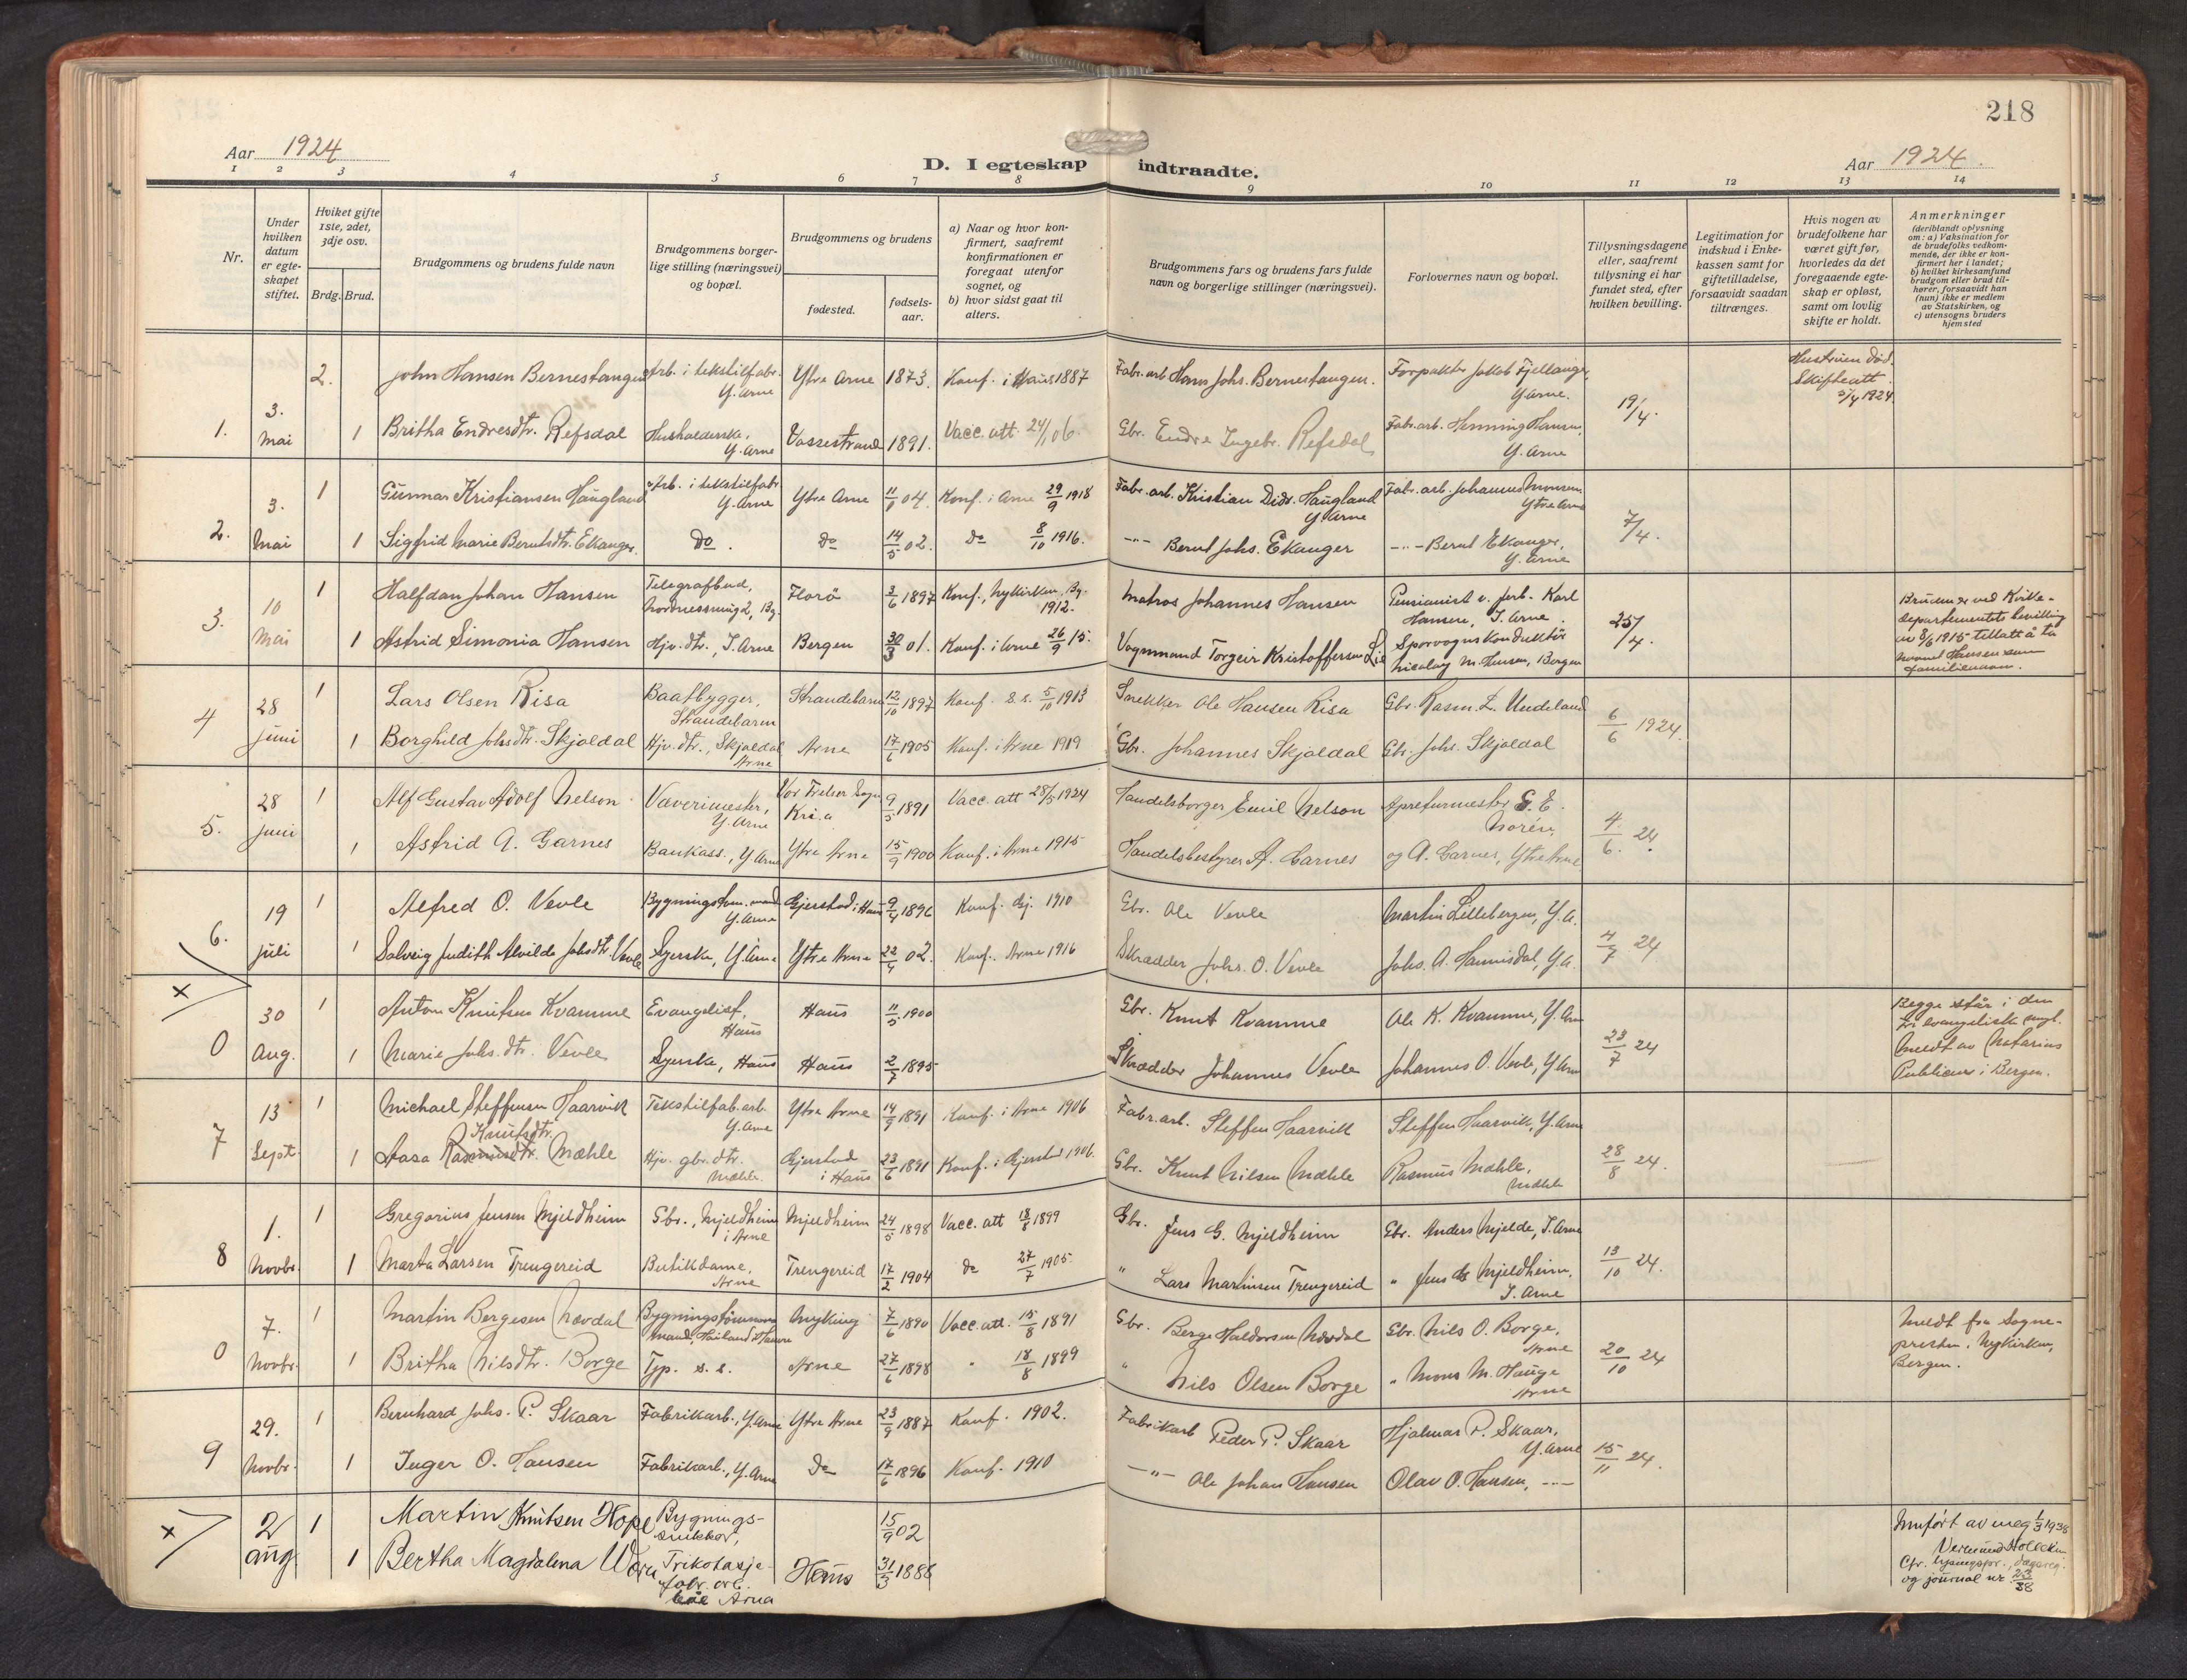 218
Aar 1924
D. I egteskap indtraadte.
Aar 1924.
1 2 3 4 5 6 7 8 9 10 11 12 13 14
Nr.
Under hvilken datum er egte-skapet stiftet.
Hviket gifte 1ste, 2det, 3dje osv.
Brdg. Brud.
Brudgommens og brudens fulde navn
Brudgommens borger-lige stilling (næringsvei) og bopæl.
Brudgommens og brudens
fødested.
fødsels-aar.
a) Naar og hvor kon-firmert, saafremt konfirmationen er foregaat utenfor sognet, og
b) hvor sidst gaat til alters.
Brudgommens fars og brudens fars fulde navn og borgerlige stillinger (næringsvei).
Forlovernes navn og bopæl.
Tillysningsdagene eller, saafremt tillysning ei har fundet sted, efter hvilken bevilling.
Legitimation for indskud i Enke-kassen samt for giftetilladelse, forsaavidt saadan tiltrænges.
Hvis nogen av brudefolkene har været gift før, hvorledes da det foregaaende egte-skap er opløst, samt om lovlig skifte er holdt.
Anmerkninger
(deriblandt oplysning om: a) Vaksination for de brudefolks vedkom-mende, der ikke er kon-firmert her i landet; b) hvilket kirkesamfund brudgom eller brud til-hører, forsaavidt han (hun) ikke er medlem av Statskirken, og c) utensogns bruders hjemsted
1. 3. Mai
2. John Hansen Bernestangen Arb. i tekstilfabr. Y. Arne Ytre Arne 1873. Konf. i Haus 1887 Fabr. arb. Hans Johs. Bernestangen. Forpakter Jakob Fjellanger, Y. Arne. 19/4. Hustruen død. Skifteatt. 1924
1 Britha Endresdtr. Refsdal Husholderske, Y. Arne Vossestrand 1891. Vacc. att. 06. Gbr. Endre Ingebr. Refsdal Fabr. arb. Henning Hansen, Y. Arne
2. 3. Mai
1 Gunnar Kristiansen Haugland Arb. i tekstilfabr. Y. Arne Ytre Arne 04. Konf. i Arne 29/9 1918 Fabr. arb. Kristian Didr. Haugland Y. Arne Fabr. arb. Johannes Monsen Ytre Arne 7/4.
1 Sigfrid Marie Berntsdtr. Ekanger. Do. do 14/5 02. do 8/10 1916. -"- Bernt Johs. Ekanger -"- Bernt Ekanger, Y. Arne
3. 10 Mai
1 Halfdan Johan Hansen Telegrafbud, Nordnessmug 2, Bg. Florø 3/6 1897 Konf. Nykirken, Bg. 1912. Matros Johannes Hansen Pensionist v. jerb. Karl Hansen, I. Arne. 25/4. Bruden er ved Kirke-departementets bevilling av 8/6 1915 tillatt å ta navnet Hansen som familienavn.
1 Astrid Simonia Hansen Hjv. dtr., I. Arne Bergen 30/3 01. Konf. i Arne 26/9 15. Vognmand Torgeir Kristoffersen Lie Sporvognskonduktør Nicolay M. Hansen, Bergen
4 28 juni
1 Lars Olsen Risa Baatbygger, Strandebarm Strandebarm 12/10 1897 Konf. s. s. 5/10 1913 Snekker Ole Hansen Risa Gbr. Rasm. L. Undeland 6/6 1924.
1 Borghild Johsdtr. Skjoldal Hjv. dtr., Skjoldal Arne Arne 17/6 1905 Konf. i Arne 1919 Gbr. Johannes Skjoldal Gbr. Johs. Skjoldal
5. 28 juni
1 Alf Gustav Adolf Nelson Væverimester, Y. Arne Vor Frelser Sogn Kr.ia 9/5 1891 Vacc. att 28/5 1924 Handelsborger Emil Nelson Apreturmester G. E. Norén, 4/6. 24.
1 Astrid A. Garnes Bankass., Y. Arne Ytre Arne 15/9 1900 Konf. i Arne 1915 Handelsbestyrer A. Garnes og A. Garnes, Ytre Arne
6. 19 juli
1 Alfred O. Vevle Bygningstøm. mand Y. Arne Gjerstad i Haus 9/4 1896 Konf. Gj. 1910 Gbr. Ole Vevle Martin Lillebergen, Y. A. 4/7 24
1 Solveig Judith Alvilde Johsdtr. Vevle Syerske, Y. Arne Ytre Arne 22/4 02. Konf. Arne 1916 Skrædder Johs. O. Vevle Johs. A. Hannisdal, Y. A.
x
0 30 Aug.
1 Anton Knutsen Kvamme Evangelist, Haus Haus 11/5 1900 Gbr. Knut Kvamme Ole K. Kvamme, Y. Arne 23/7 24 Begge står i den fri evangeliske mgh. Meldt av Notarius Publicus i Bergen.
1 Marie Johs. dtr. Vevle Syerske, Haus Haus 2/7 1895 Skrædder Johannes Vevle Johannes O. Vevle, Y. Arne
7 13 Sept.
1 Michael Steffensen Haarvik Tekstilfab. arb. Y. Arne Ytre Arne 14/9 1891 Konf. i Arne 1906 Fabr. arb. Steffen Haarvik Steffen Haarvik, Y. Arne 28/8 24.
Knutsdtr.
1 Aasa Rasmusdtr. Mæhle Hjv. gbr. dtr. Mæhle. Gjerstad i Haus 23/6 1891 Konf. i Gjerstad 1906. Gbr. Knut Nilsen Mæhle Rasmus Mæhle, Mæhle
8 1. Novbr.
1 Gregorius Jensen Mjeldheim Gbr., Mjeldheim i Arne Mjeldheim 24/5 1898 Vacc. att 18/8 1899 Gbr. Jens G. Mjeldheim Gbr. Anders Mjelde, I. Arne 13/10 24.
1 Marta Larsen Trengereid Butikdame, Arne Trengereid 17/2 1904 do 27/7 1905. " Lars Martinsen Trengereid " Jens G. Mjeldheim, I. Arne
0 7. Novbr.
1 Martin Bergesen Nævdal Myking 7/6 1890 Vacc. att. 15/8 1891 Gbr. Berge Haldorsen Nævdal Gbr. Nils O. Borge, Arne 20/10 24 Meldt fra Sogne-presten. Nykirken, Bergen.
1 Britha Nilsdtr. Borge Typ. s. s. Arne 27/6 1898 " 18/8 1899 " Nils Olsen Borge " Mons M. Hauge Arne
9 29. Novbr.
1 Bernhard Johs. P. Skaar Fabrikarb., Y. Arne Ytre Arne 23/9 1887 Konf. 1902. Fabrikarb Peder P. Skaar Hjalmar P. Skaar, Y. Arne 15/11 24.
1 Inger O. Hansen Fabrikarb., Y. Arne Do 17/6 1896 Konf. 1910 -"- Ole Johan Hansen Olav O. Hansen, -"-
x 2 aug.
1 Martin Knutsen Hope Bygnings-snikker, 15/9 02 Innført av meg 1/3 1938
1 Bertha Magdalena Trikotasje-fabr. arb. Arna Haus 31/3 1888 Cfr. lysningspr., dagsreg. og journal nr. 23/38